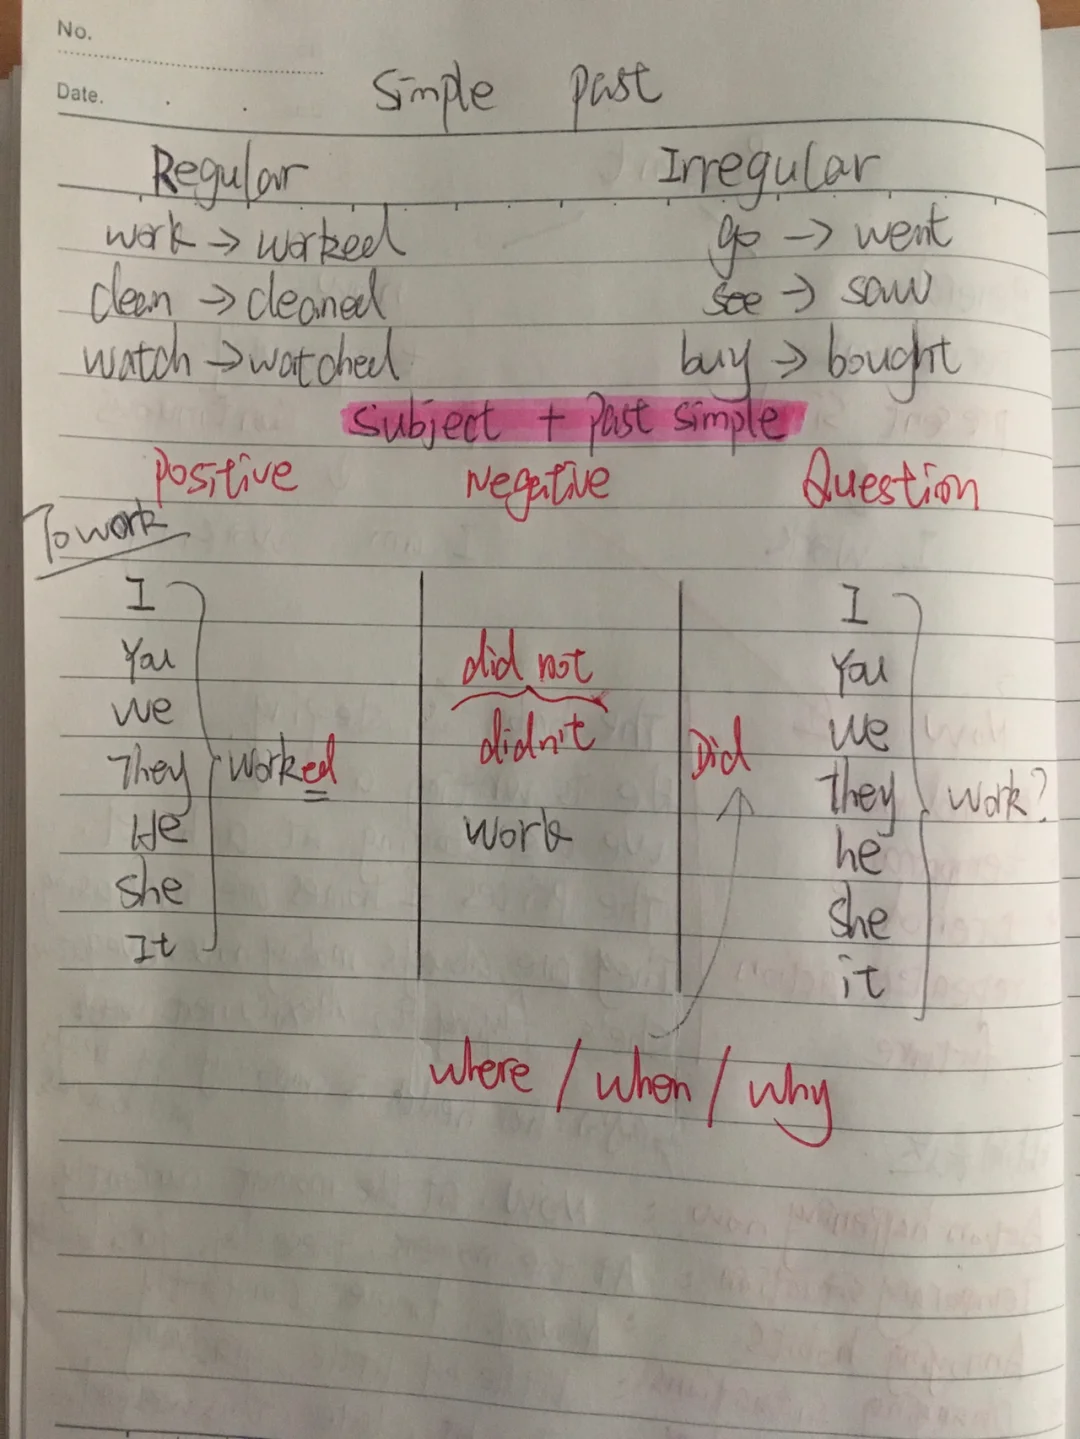 No.
Date.
Simple Past
Regular Irregular
work → worked go → went
clean → cleaned see → saw
watch → watched buy → bought
Subject + Past simple
Positive Negative Question
To work
I I
You did not You
we didn't we
They worked Did they work?
He work he
she she
It it
where / when / why